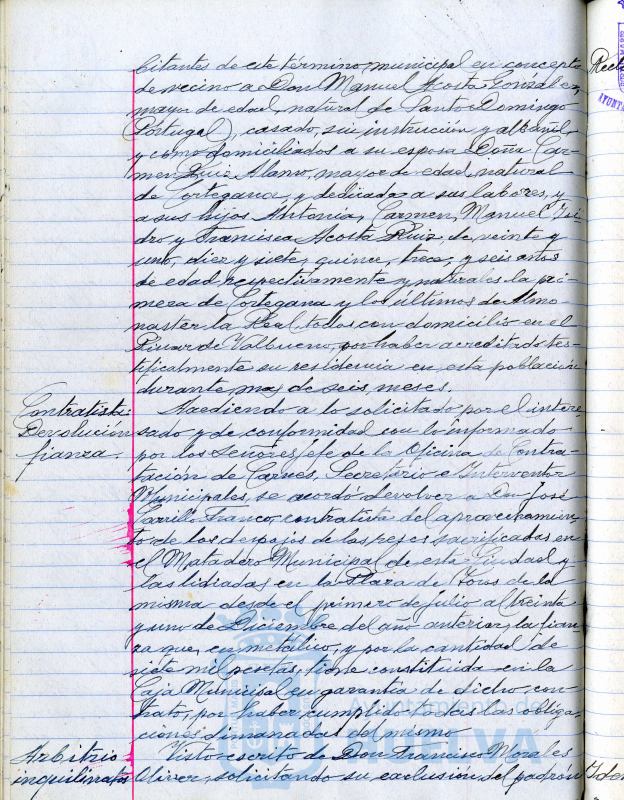 bitantes de este término municipal en concepto
de vecino a Don Manuel Acosta González,
mayor de edad, natural de Santo Domingo
(Portugal), casado, sin instrucción y albañil,
y como domiciliados a su esposa Doña Car-
men Ruiz Alonso, mayor de edad, natural
de Cortegana, y dedicada a sus labores, y
a sus hijos Antonia, Carmen, Manuel Isi-
dro, y Francisca Acosta Ruiz, de veinte y
uno, diez y siete, quince, trece, y seis años
de edad, respectivamente y naturales la pri-
mera de Cortegana y los últimos de Almo-
naster la Real, todos con domicilio en el
Pinar de Valbueno, por haber acreditado tes-
tificalmente su residencia en esta población
durante mas de seis meses.
Contratista:
Devolución
fianza.
Accediendo a lo solicitado por el intere-
sado y de conformidad con lo informado
por los Señores Jefe de la Oficina de Contra-
tación de Carnes, Secretario e Interventor
Municipales, se acordó devolver a Don José
Carrillo Franco, contratista del aprovechamien-
to de los despojos de las reses sacrificadas en
el Matadero Municipal de esta Ciudad y
las lidiadas en la Plaza de Toros de la
misma desde el primero de Julio al treinta
y uno de Diciembre del año anterior, la fian-
za que, en metálico, y por la cantidad de
siete mil pesetas, tiene constituida en la
Caja Municipal en garantía de dicho con-
trato, por haber cumplido todas las obliga-
ciones dimanadas del mismo.
Arbitrio
inquilinatos
Visto escrito de Don Francisco Morales
Oliver, solicitando su exclusión del padrón
Ayuntamiento de
HUELVA